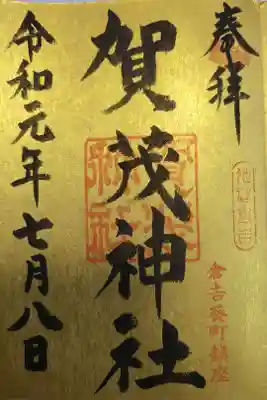 奉拝
倉吉葵町鎮座
賀茂神社
令和元年七月八日